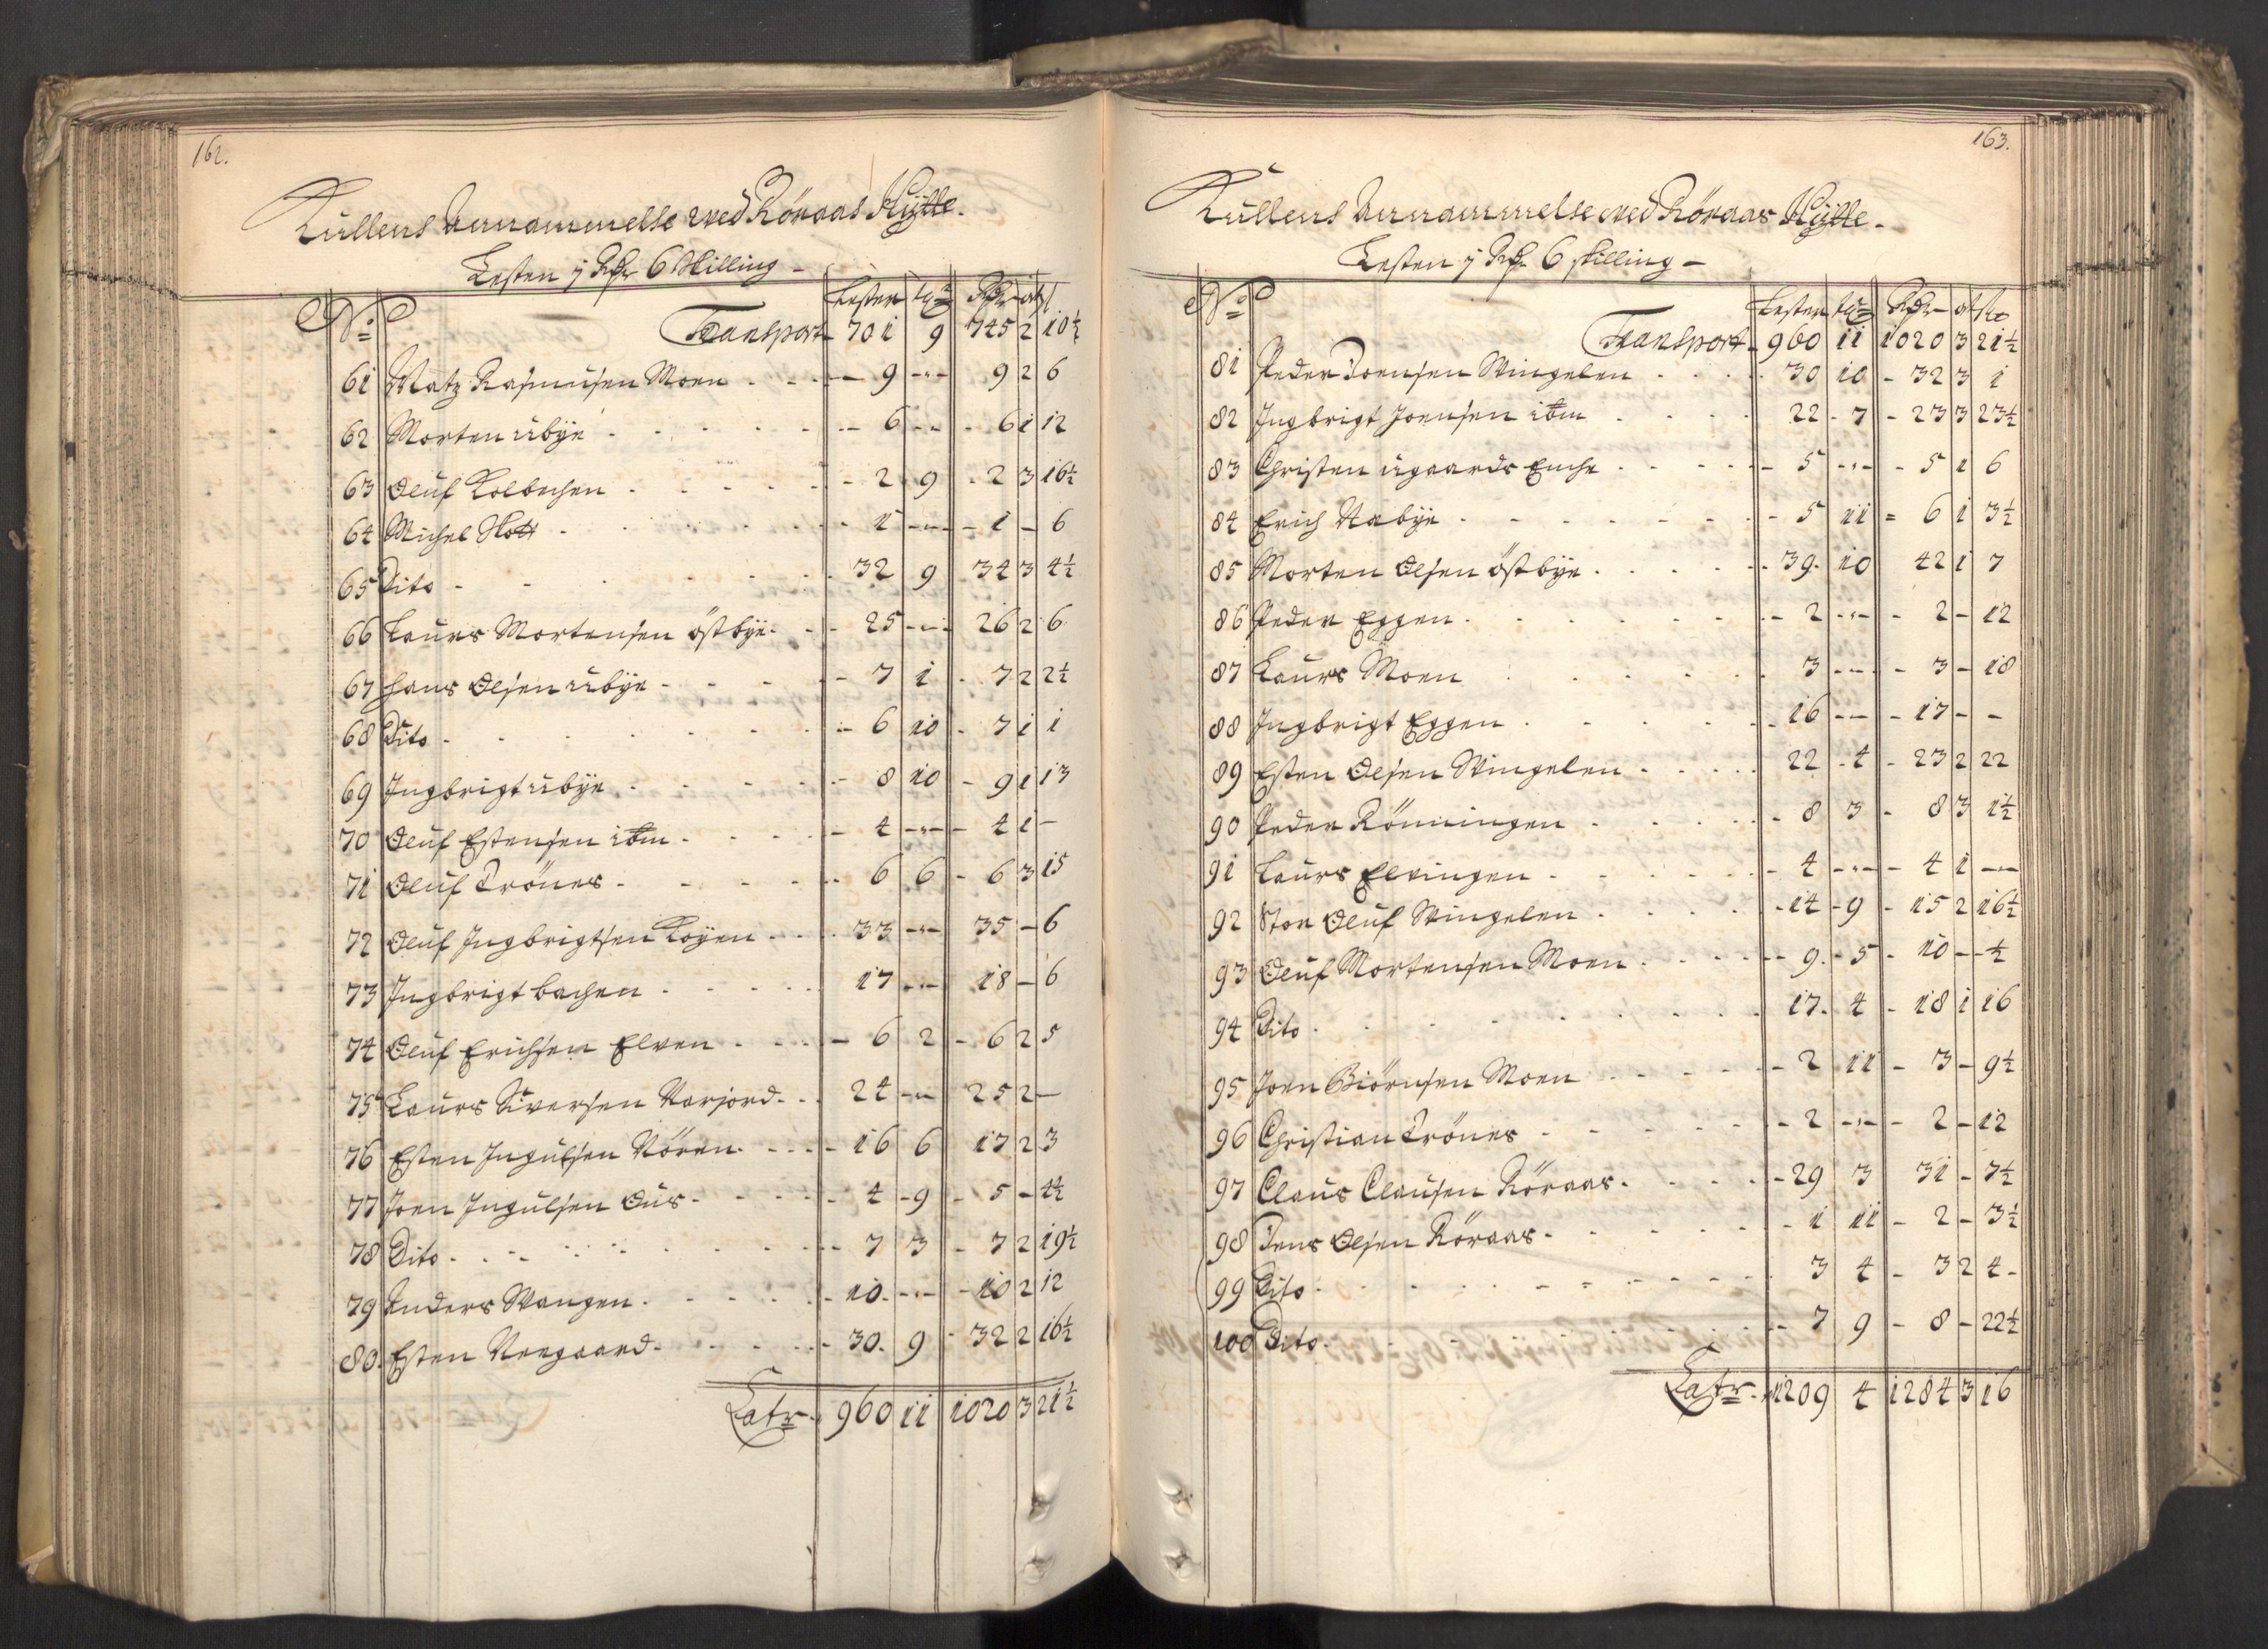 162.
Kullens Annammelse ved Röraas Hÿtte.
Lesten j Rdr 6 Skilling
No Lester tdr Rdr ort sk
Transport 701 9 745 2 10½
61 Matz Rasmusen Moen 9 9 2 6
62 Morten Aabye 6 6 1 12
63 Oluf Kolbechen 2 9 2 3 16½
64 Michel Klott 1 1 6
65 Dito 32 9 34 3 4½
66 Laurs Mortensen östbÿe 25 26 2 6
67 Hans Olsen 7 1 7 2 2½
68 Dito 6 10 7 1 1
69 Ingbrigt 8 10 9 1 13
70 Oluf Estensen ibm 4 4 1
71 Oluf Trönes 6 6 6 3 15
72 Oluf Ingbrigtsen 33 35 6
73 Ingbrigt bachen 17 18 6
74 Oluf Erichsen Elven 6 2 6 2 5
75 Laurs Siversen 24 25 2
76 Esten Ingulsen 16 6 17 2 3
77 Joen Ingulsen Aus 4 9 5 4½
78 Dito 7 3 7 2 19½
79 Anders Wangen 10 10 2 12
80. Esten 30. 9 32 2 16½
Latr 960 11 1020 3 21½
163.
Kullens Annammelse ved Röraas Hÿtte.
Lesten j Rdr 6 skilling
No Lester tdr Rdr ort sk
Transport 960 11 1020 3 21½
81 Peder Joensen Wingelen 30 10 32 3 1
82 Ingbrigt Joensen ibm 22 7 23 3 23½
83 Christen Enche 5 5 1 6
84 Erich Nabÿe 5 11 6 1 3½
85 Morten Olsen östbÿe 39. 10 42 1 7
86 Peder Eggen 2 2 12
87 Laurs Moen 3 3 18
88 Ingbrigt Eggen 16 17
89 Esten Olsen Wingelen 22 4 23 2 22
90 Peder Rönningen 8 3 8 3 1½
91 Laurs Elvingen 4 4 1
92 Stor Oluf Wingelen 14 9 15 2 16½
93 Oluf Mortensen Moen 9. 5 10 ½
94 Dito 17. 4 18 1 16
95 Joen Biörnsen Moen 2 11 3 9½
96 Christian Trönes 2 2 12
97 Claus Clausen Röraas 29 3 31 7½
98 Jens Olsen Röraas 1 11 2 3½
99 Dito 3 4 3 2 4
100 Dito 7 9 8 22½
Latr 1209 4 1284 3 16